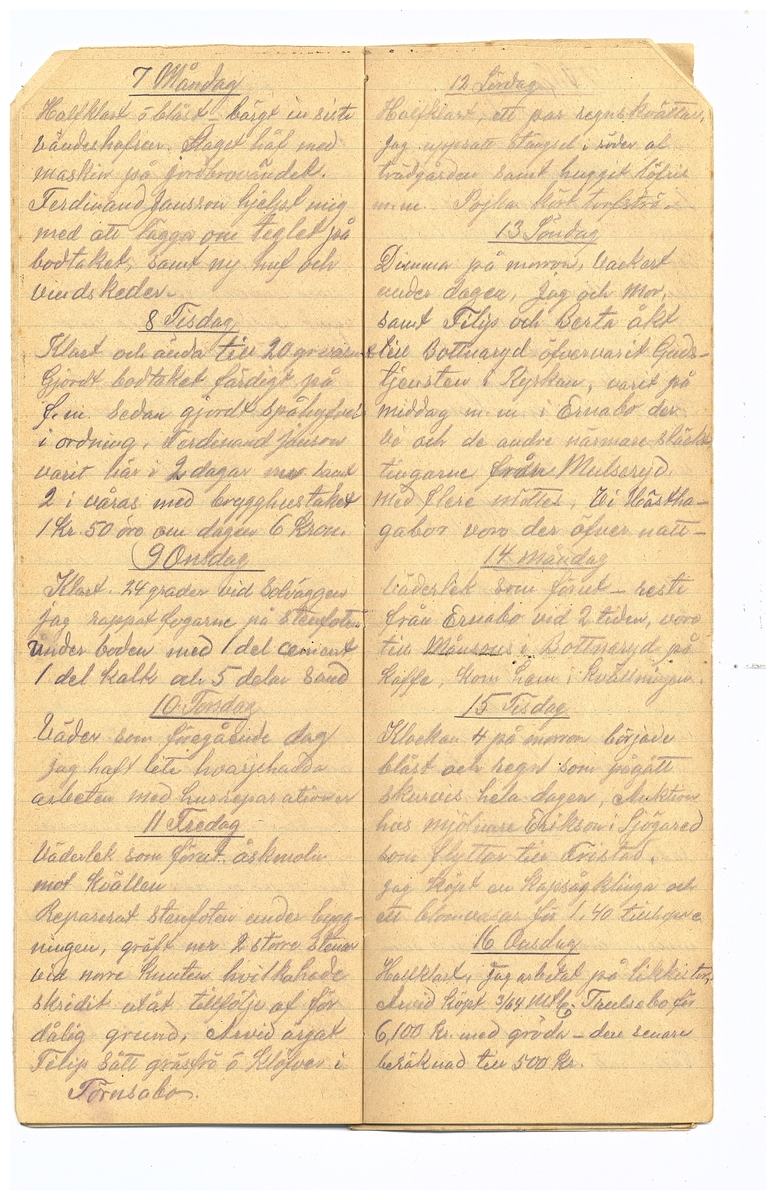 7 Måndag
Halfklart ö blåst – bärgt in siste
vändeshafren. Slaget häf med
maskin på jordbrovändet.
Ferdinand Jansson hjelpt mig
med att lägga om teglet på
bodtaket, samt ny huf och
vindskeder.
8 Tisdag
Klart och ända till 20 gr värme
Gjordt bodtaket färdigt på
f.m. sedan gjordt spåhyfveln
i ordning. Ferdinand Janson
varit här i 2 dagar nu samt
2 i våras med brygghustaket
1 Kr. 50 öre om dagen 6 Kron.
9 Onsdag
Klart. 24 grader vid Solväggen
jag rappat fogarne på stenfoten
under boden med 1 del cement
1 del kalk och 5 delar Sand
10 Torsdag
Väder som föregående dag
jag haft lite hvarjehanda
arbeten med husreparationer
11 Fredag
Väderlek som förut. åskmoln
mot kvällen
Reparerat stenfoten under bygg-
ningen, gräft ner 2 större stenar
vid norre knuten hvilka hade
skridit utåt tillfölje af för
dålig grund. Arvid ärjat
Filip Sått gräsfrö ö Klöfver i
Törnsabo.
12 Lördag
Halfklart, ett par regnskvättar,
jag uppsatt stängsel i söder af
trädgården samt huggit löfris
m.m. Pojkar kört torfströ.
13 Söndag
Dimma på morron, Vackert
under dagen, Jag och Mor,
samt Filip och Berta åkt
till Bottnaryd öfvervarit Guds-
tjensten i Kyrkan, varit på
middag m.m. i Ernabo der
vi och de andre närmare släck-
tingarne från Mulseryd.
med flere möttes, Vi Hästha-
gabor voro der öfver natt –
14 måndag
Väderlek som förut – reste
från Ernabo vid 2 tiden, voro
till Månsons i Bottnaryd på
Kaffe, kom hem i kvällningen.
15 Tisdag
Klockan 4 på morron började
blåst och regn som pågått
skurvis hela dagen, Auktion
hos mjölnare Erikson i Sjögared
som flyttar till Frestad.
jag köpt en Kapsågklinga och
ett blomvas för 1.40 tillhopa
16 Onsdag
Halfklart, Jag arbetat på likkistor,
Arvid köpt 3/64 Mtl. Truelsebo för
6,100 Kr. med gröda – den senare
beräknad till 500 Kr.